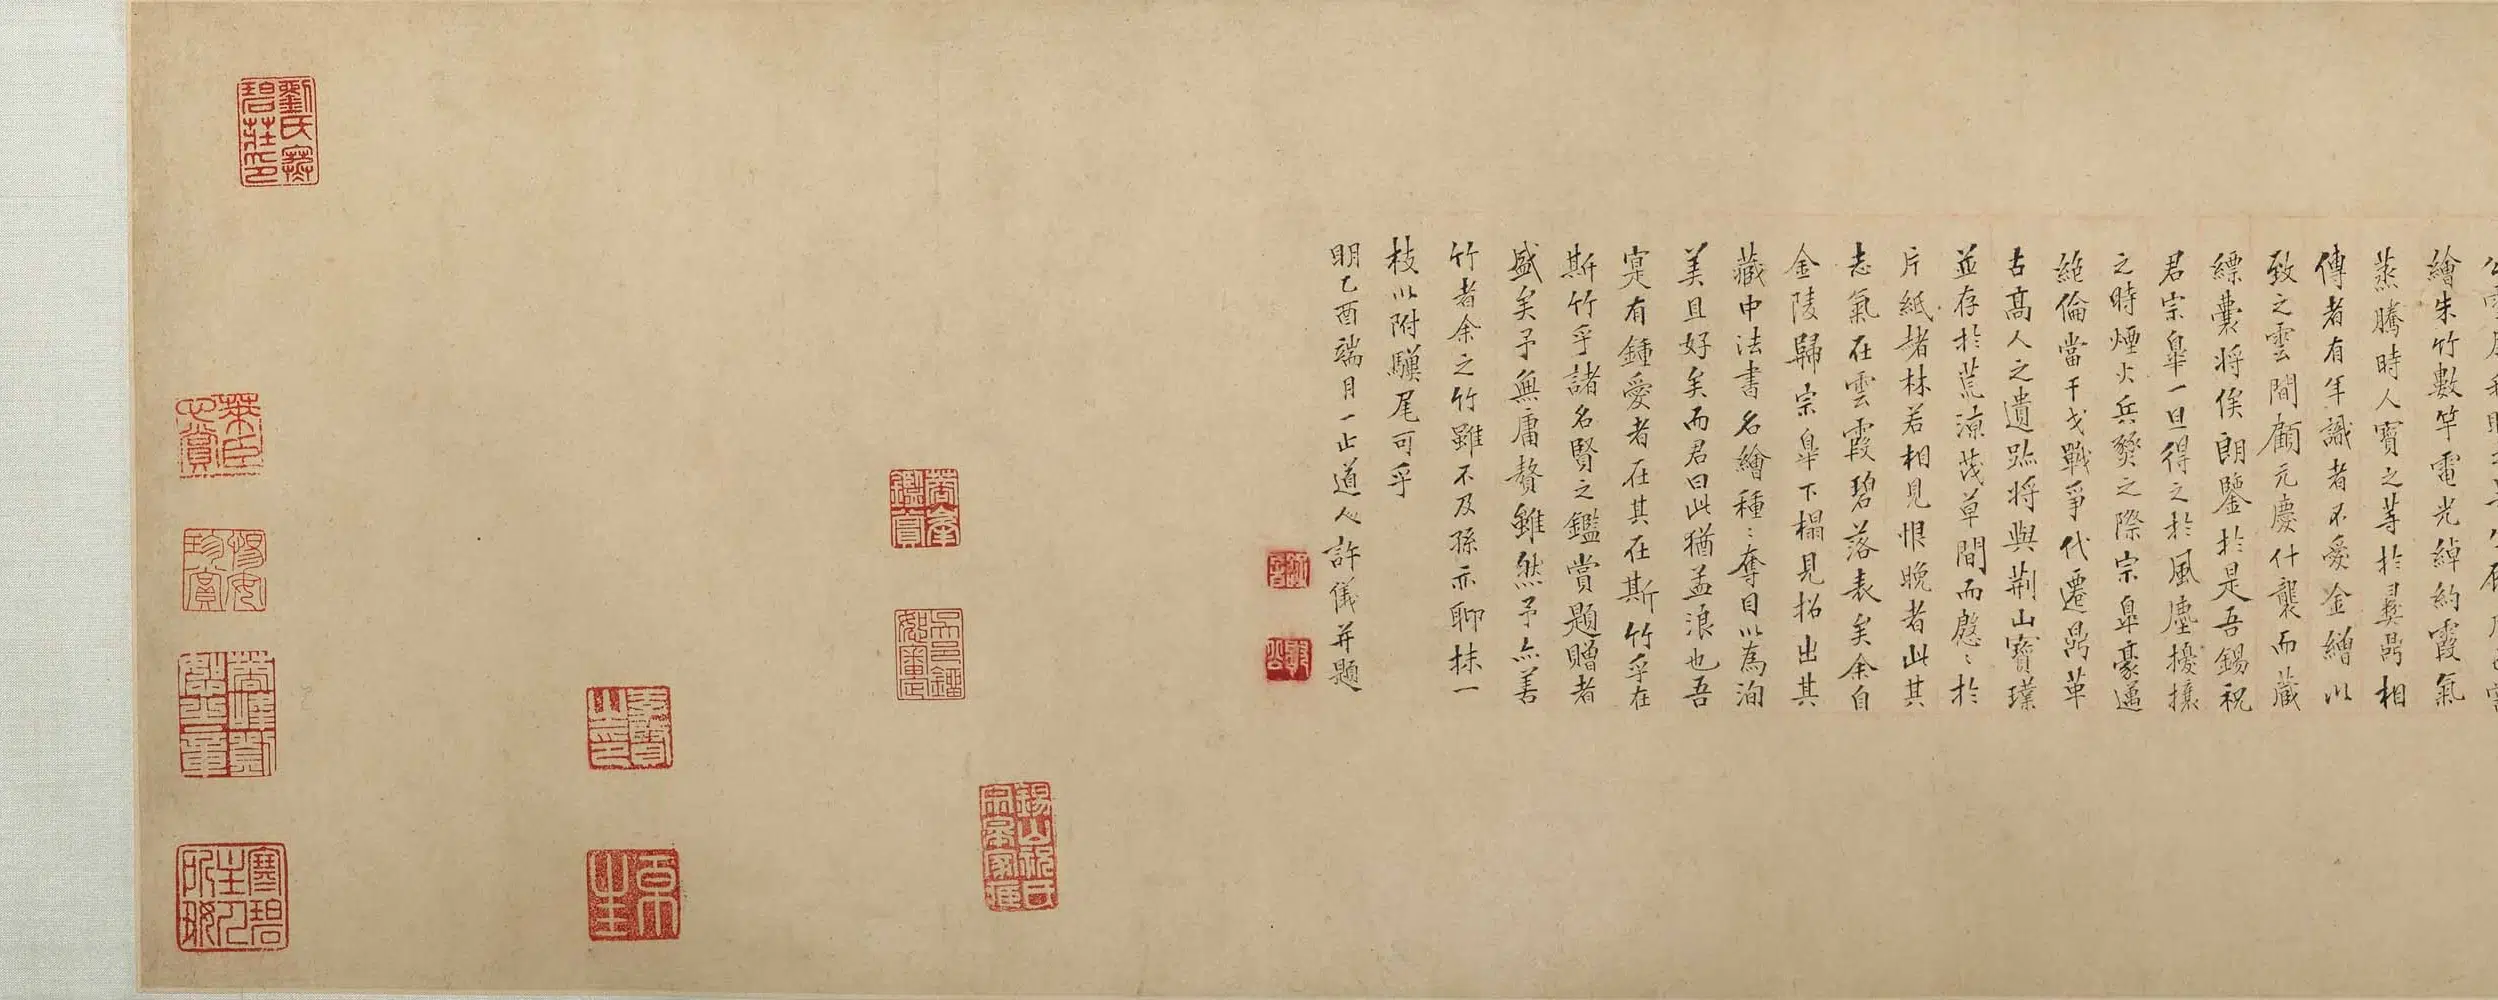 繪朱竹數竿電光綽約霞氣
蒸騰時人寶之等於彛鼎相
傳者有年識者不愛金繒以
致之雲間顧元慶什襲而藏
縹囊將俟朗鑒於是吾錫祝
君宗皐一旦得之於風塵擾攘
之時煙火兵燹之際宗皐豪邁
絕倫當干戈戰爭代遷鼎革
古高人之遺跡將與荆山寶璞
並存於荒凉茂草間而慇〻於
片紙堵林若相見恨晚者此其
志氣在雲霞碧落表矣余自
金陵歸宗皐下榻見招出其
藏中法書名繪種〻奪目以為洵
美且好矣而君曰此猶孟浪也吾
寔有鍾愛者在其在斯竹乎在
斯竹乎諸名賢之鑑賞題贈者
盛矣予無庸贅雖然予亦善
竹者余之竹雖不及孫亦聊抹一
枝以附驥尾可乎
明乙酉端月一止道人許儀并題
錫山祝氏宗皋家藏
蕎峯鑑賞
子賢之印
劉氏寒碧莊印
蓉峰劉恕之章
寒碧主人所珍